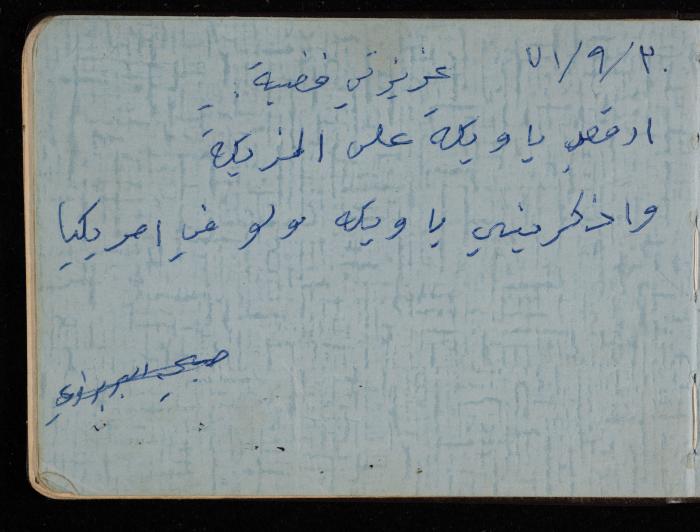 ٧١/٩/٣٠
عزيزتي فضية
ارقصي يا ويكة على المزيكة
واذكريني يا ويكه ولو في امريكيا
صبحي